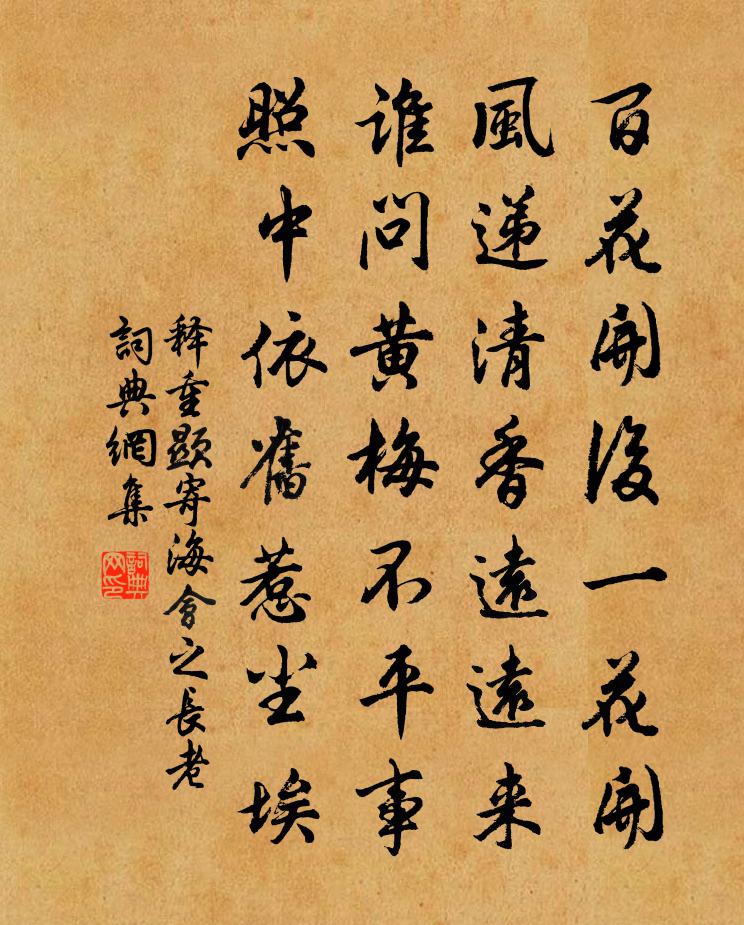 百花開後一花開
風递清香遠遠来
誰問黄梅不平事
照中依舊惹尘埃
释重顕寄海會之長老
詞典網集
詞典网印